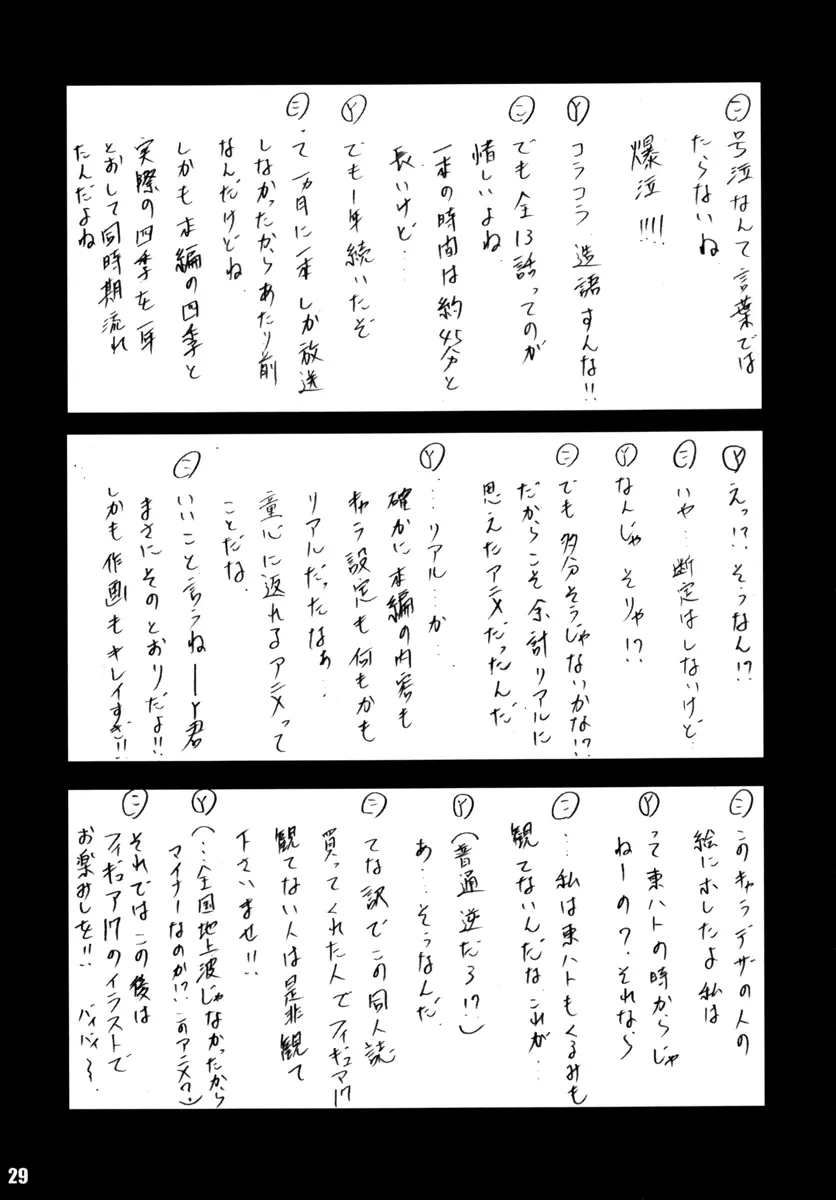 ㊁ 号泣なんて言葉では
たらないね
爆泣!!!!
Ⓨ コラコラ 造語すんな!!
㊁ でも全13話ってのが
惜しいよね
一本の時間は約45分と
長いけど…
Ⓨ でも1年続いたぞ
㊁ って一ヵ月に一本しか放送
しなかったからあたり前
なんだけどね
しかも本編の四季と
実際の四季を一年
とおして同時期流れ
たんだよね
Ⓨ えっ!?そうなん!?
㊁ いや…断定はしないけど…
Ⓨ なんじゃそりゃ!?
㊁ でも多分そうじゃないかな!?
だからこそ余計リアルに
思えたアニメだったんだ
Ⓨ …リアル…か
確かに本編の内容も
キャラ設定も何もかも
リアルだったなぁ…
童心に返れるアニメって
ことだな
㊁ いいこと言うねーY君
まさにそのとおりだよ!!
しかも作画もキレイすぎ!!
㊁ このキャラデザの人の
絵にホレたよ私は
Ⓨ って東ハトの時からじゃ
ねーの?それなら
㊁ …私は東ハトもくるみも
観てないんだなこれが…
Ⓨ (普通逆だろ!?)
あ…そうなんだ
㊁ てな訳でこの同人誌
買ってくれた人でフィギュア17
観てない人は是非観て
下さいませ!!
Ⓨ (…全国地上波じゃなかったから
マイナーなのか!?このアニメ?)
㊁ それではこの後は
フィギュア17のイラストで
お楽みしを!! バイバイ〜
29